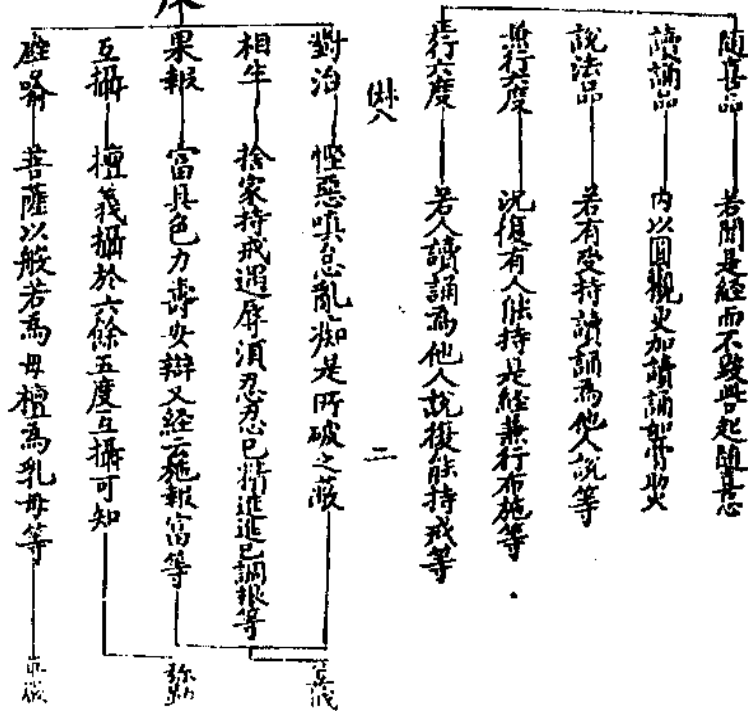 隨喜品 若聞是経而不毀呰起隨喜
讀誦品 內以圓觀更加讀誦如膏助火
說法品 若有受持讀誦為他人說等
兼行六度 況復有人能持是経兼行布施等
正行六度 若人讀誦為他人說復能持戒等
二
對治 慳惡嗔怠亂痴是所破之蔽
相生 捨家持戒遇辱須忍忍已精進進已調根等
果報 富具色力壽安辯又経云施報富等
互攝 檀義攝於六餘五度互攝可知
譬喻 菩薩以般若為母檀為乳母等